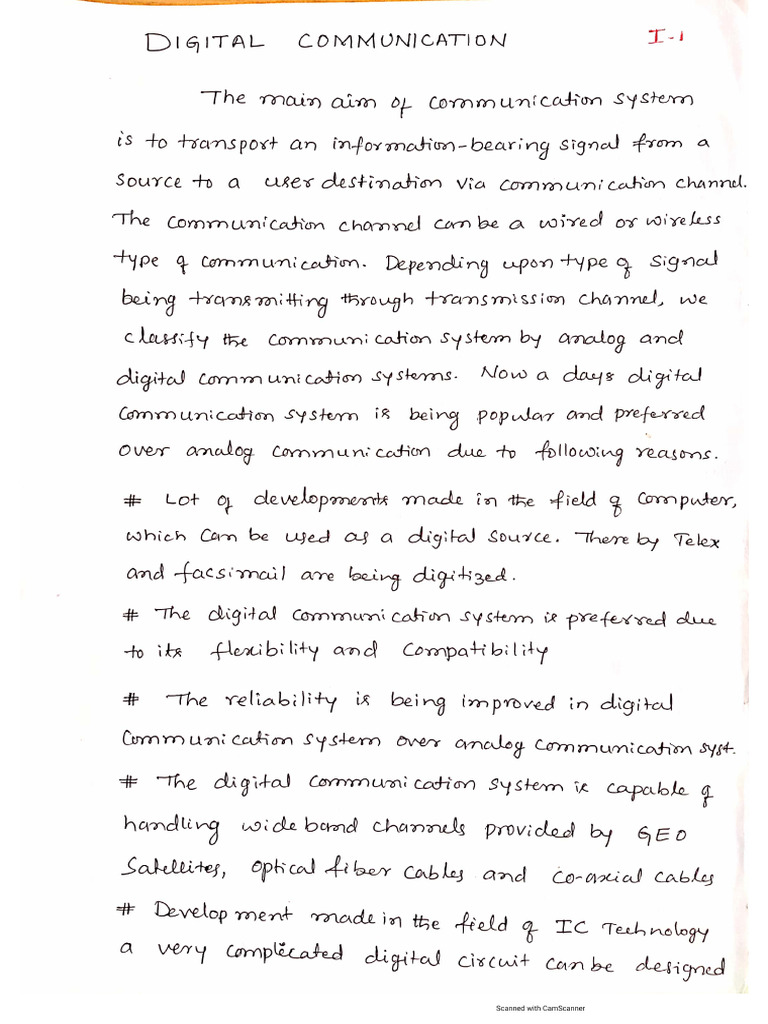 DIGITAL COMMUNICATION I-1
The main aim of communication system
is to transport an information-bearing signal from a
source to a user destination via communication channel.
The communication channel can be a wired or wireless
type of communication. Depending upon type of signal
being transmitting through transmission channel, we
classify the communication system by analog and
digital communication systems. Now a days digital
communication system is being popular and preferred
over analog communication due to following reasons.
# Lot of developments made in the field of computer,
which can be used as a digital source. There by Telex
and facsimail are being digitized.
# The digital communication system is preferred due
to its flexibility and compatibility
# The reliability is being improved in digital
communication system over analog communication syst.
# The digital communication system is capable of
handling wide band channels provided by GEO
Satellites, optical fiber cables and co-axial cables
# Development made in the field of IC Technology
a very complicated digital circuit can be designed
Scanned with CamScanner